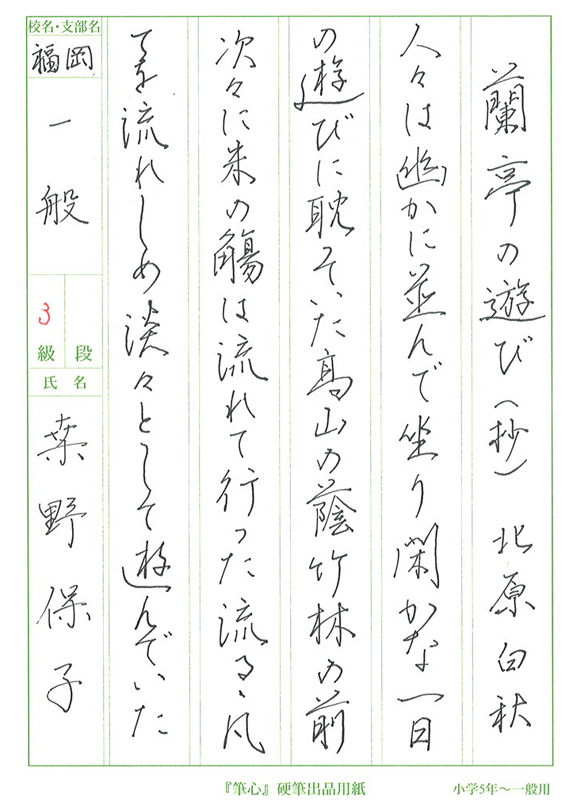 蘭亭の遊び(抄) 北原白秋
人々は幽かに並んで坐り閑かな一日
の遊びに耽ていた高山の蔭竹林の前
次々に朱の觴は流れて行った流るゝ凡
てを流れしめ淡々として遊んでいた
校名・支部名
福岡
一般
3
級 段
氏名
桒野保子
『筆心』硬筆出品用紙
小学5年〜一般用